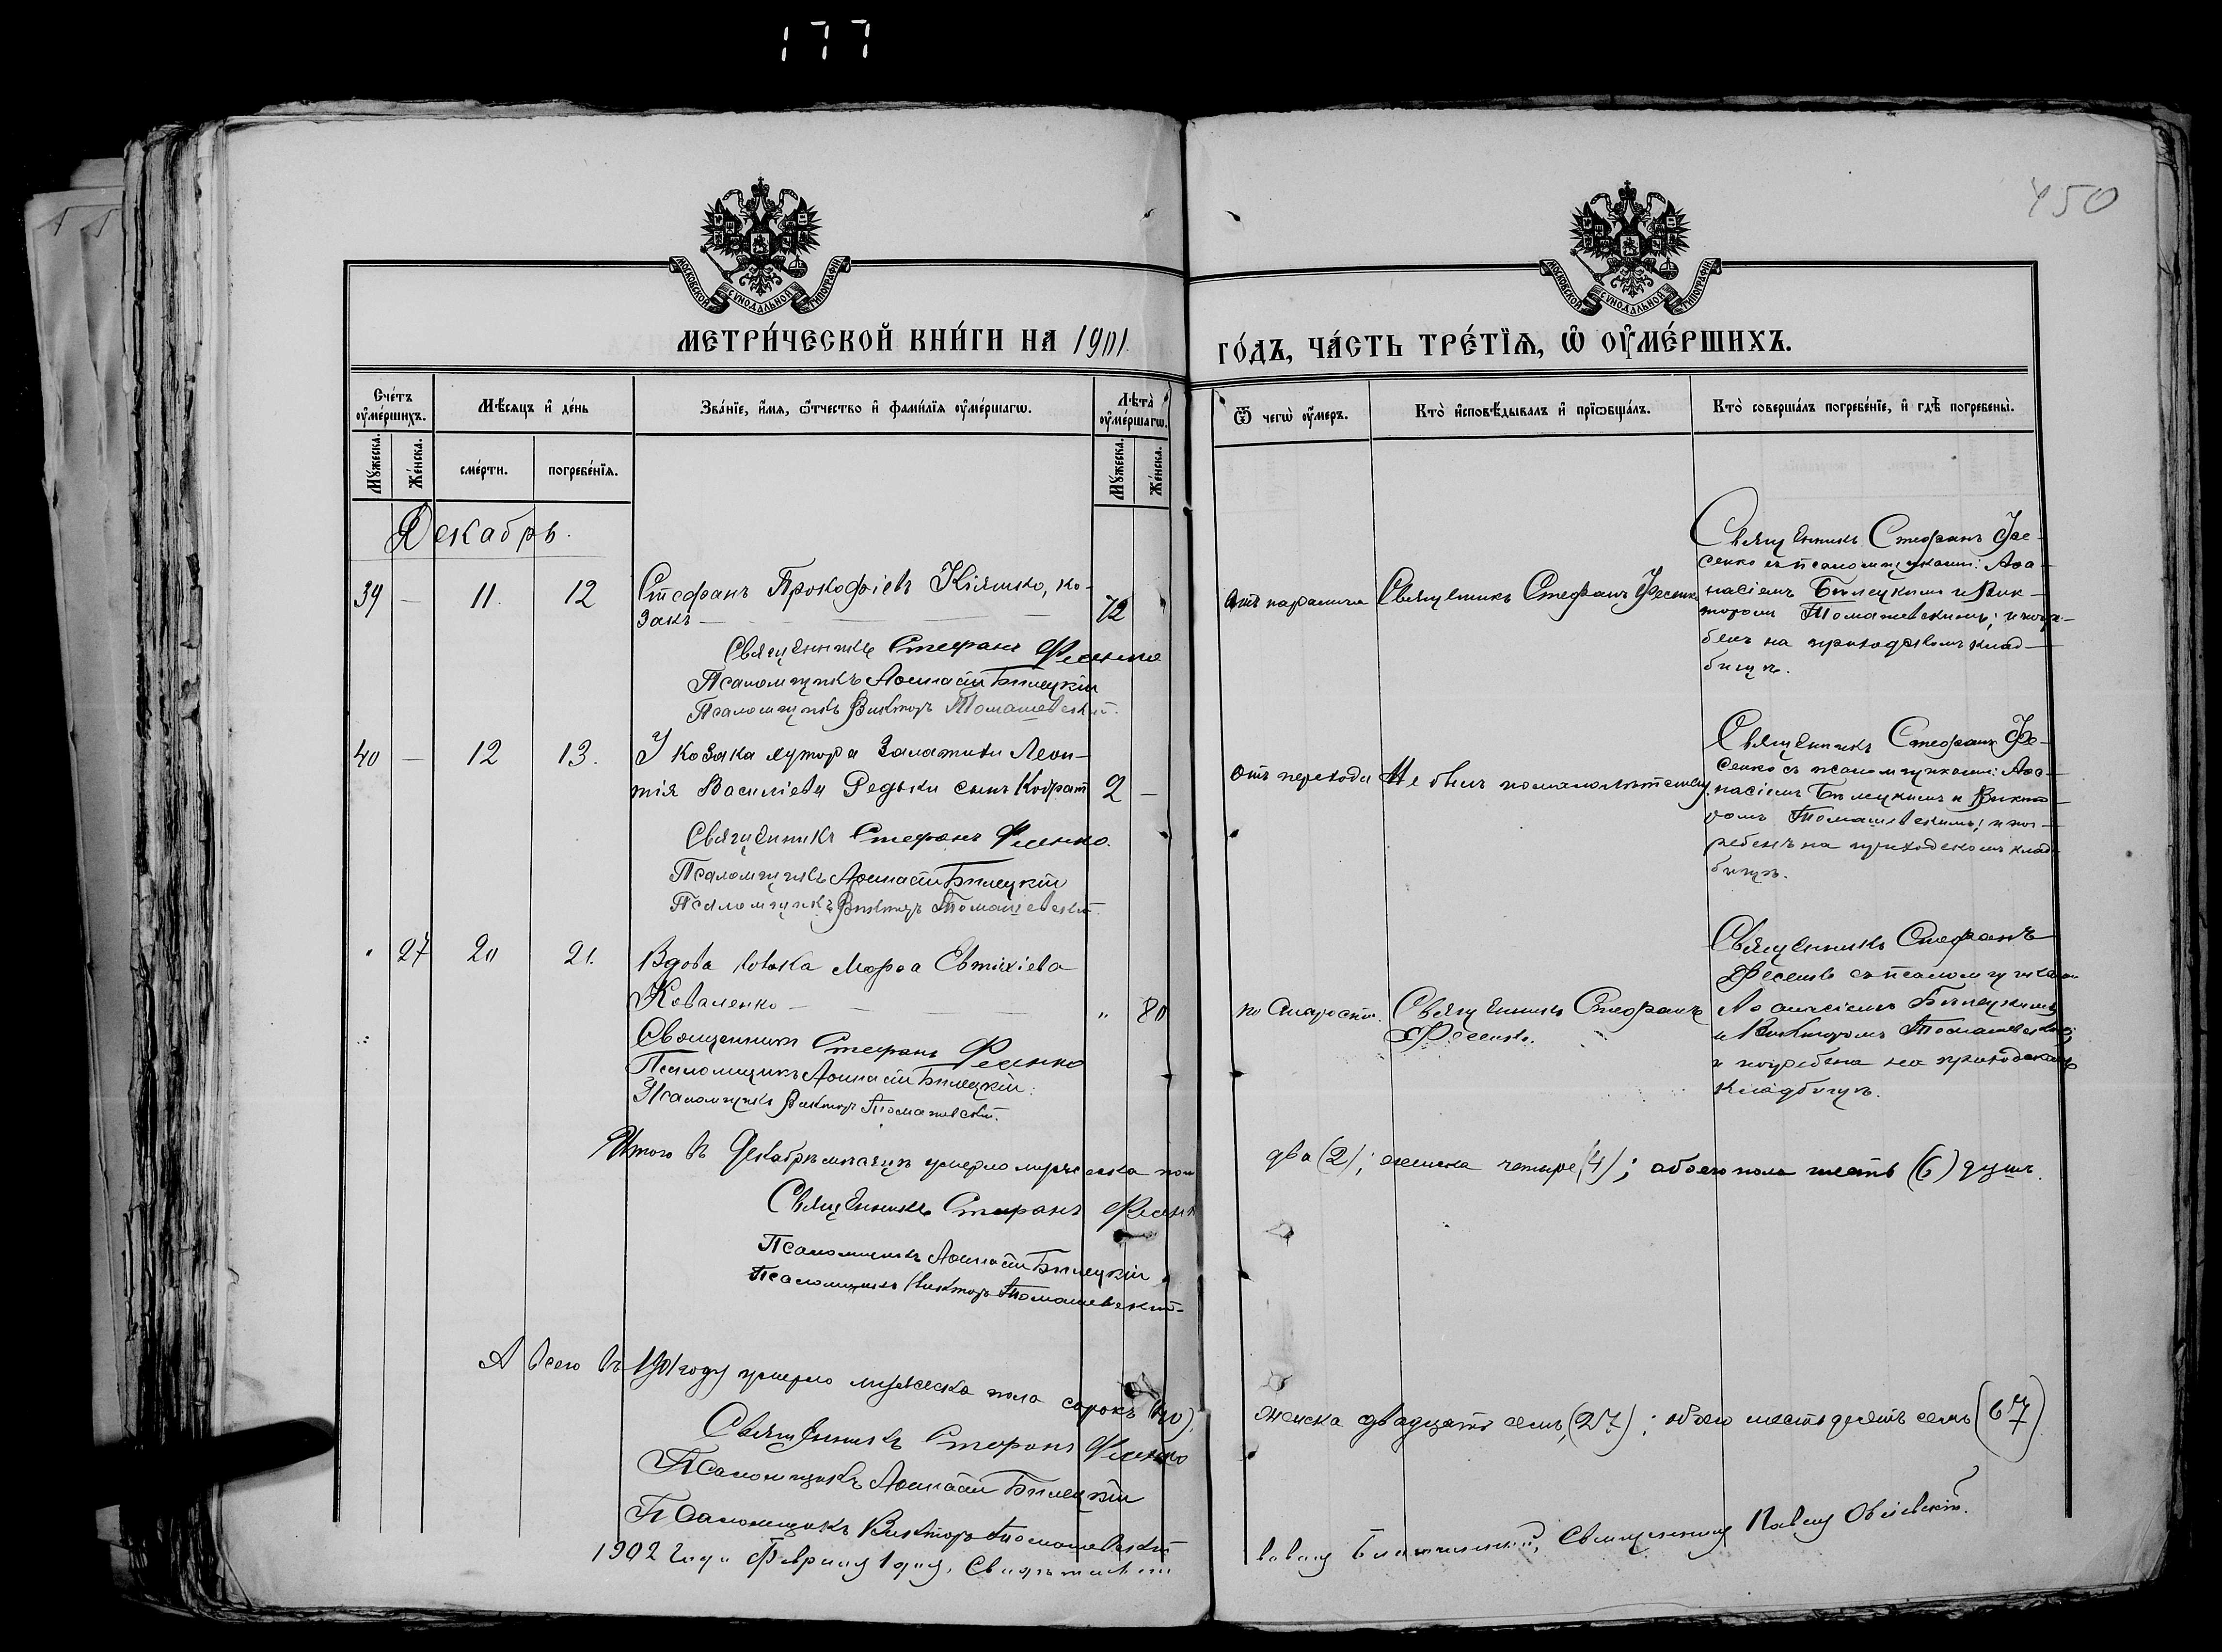 177
450
МОСКОВСКОЙ СѴНОДАЛЬНОЙ ТИПОГРАФІИ
МОСКОВСКОЙ СѴНОДАЛЬНОЙ ТИПОГРАФІИ
МЕТРИ́ЧЕСКОЙ КНИ́ГИ НА 1901
ГО́ДЪ, ЧА́СТЬ ТРЕ́ТЇѦ, Ѡ҆ ОУ҆МЕ́РШИХЪ.
Сче́тъ оу҆ме́ршихъ.
Мꙋ́жеска.
Же́нска.
Мѣ́сяцъ и҆ де́нь
сме́рти.
погребе́нїѧ.
Зва́нїе, и҆́мѧ, ѻ҆́тчество и҆ фами́лїѧ оу҆ме́ршагѡ.
Лѣ́та оу҆ме́ршагѡ.
Мꙋ́жеска.
Же́нска.
Ѿ чегѡ̀ оу҆́меръ.
Кто̀ и҆сповѣ́дывалъ и҆ прїѡбща́лъ.
Кто̀ соверша́лъ погребе́нїе, и҆ гдѣ̀ погребены̀.
Декабрь.
39 — 11. 12
Стефанъ Прокофіевъ Кіяшко, ко-
закъ —
72
Священникъ Стефанъ Фесенко
Псаломщикъ Аѳанасій Билецкій
Псаломщикъ Викторъ Томашевскій.
отъ паралича
Священникъ Стефанъ Фесенко
Священникъ Стефанъ Фе-
сенко съ псаломщиками: Аѳа-
насіемъ Билецкимъ и Вик-
торомъ Томашевскимъ; и погре-
бенъ на приходскомъ клад-
бищѣ.
40 — 12 13.
У козака хутора Леон-
тія Василіева Редьки сынъ Кодратъ
2 —
Священникъ Стефанъ Фесенко.
Псаломщикъ Аѳанасій Билецкій
Псаломщикъ Викторъ Томашевскій.
Не былъ по малолѣтству.
Священникъ Стефанъ Фе-
сенко съ псаломщиками: Аѳа-
насіемъ Билецкимъ и Викто-
ромъ Томашевскимъ; и пог-
ребенъ на приходскомъ клад-
бищѣ.
" 27 20 21.
Вдова козака Марѳа Евтихіева
Коваленко —
" 80
Священникъ Стефанъ Фесенко
Псаломщикъ Аѳанасій Билецкій.
Псаломщикъ Викторъ Томашевскій.
по старости.
Священникъ Стефанъ
Фесенко.
Священникъ Стефанъ
Фесенко съ псаломщиками
Аѳанасіемъ Билецкимъ
и Викторомъ Томашевскимъ;
и погребена на приходскомъ
кладбищѣ.
Итого въ Декабрѣ мѣсяцѣ умерло мужеска пола
два (2); женска четыре (4); обоего пола шесть (6) душъ.
Священникъ Стефанъ Фесенко
Псаломщикъ Аѳанасій Билецкій
Псаломщикъ Викторъ Томашевскій.
А всего въ 1901 году умерло мужеска пола сорокъ (40),
женска двадцать семь, (27); обоего шестьдесятъ семь (67)
Священникъ Стефанъ Фесенко
Псаломщикъ Аѳанасій Билецкій
Псаломщикъ Викторъ Томашевскій
1902 года Февраля 1 дня, Свидѣтельство
валъ Благочинный, Священникъ Павелъ